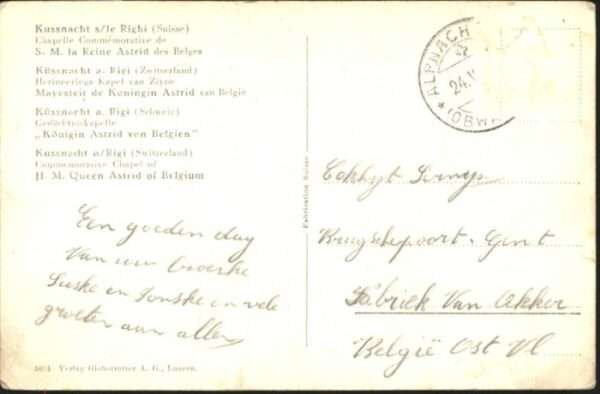 Kussnacht s/le Righi (Suisse)
Chapelle Commémorative de
S. M. la Reine Astrid des Belges
Küssnacht a. Rigi (Zwitserland)
Herinnerings Kapel van Zijne
Mayesteit de Koningin Astrid van Belgie
Küssnacht a. Rigi (Schweiz)
Gedächtniskapelle
„Königin Astrid von Belgien"
Kussnacht o/Righi (Switzerland)
Commemorative Chapel of
H. M. Queen Astrid of Belgium
Een goeden dag
Van uw broerke
Suske en en vele
groeten aan allen
4051 Verlag Globetrotter A. G., Luzern.
Fabrication Suisse
ALPNACH
24.
(OBW
Gent
Fabriek Van Akker
België Ost Vl